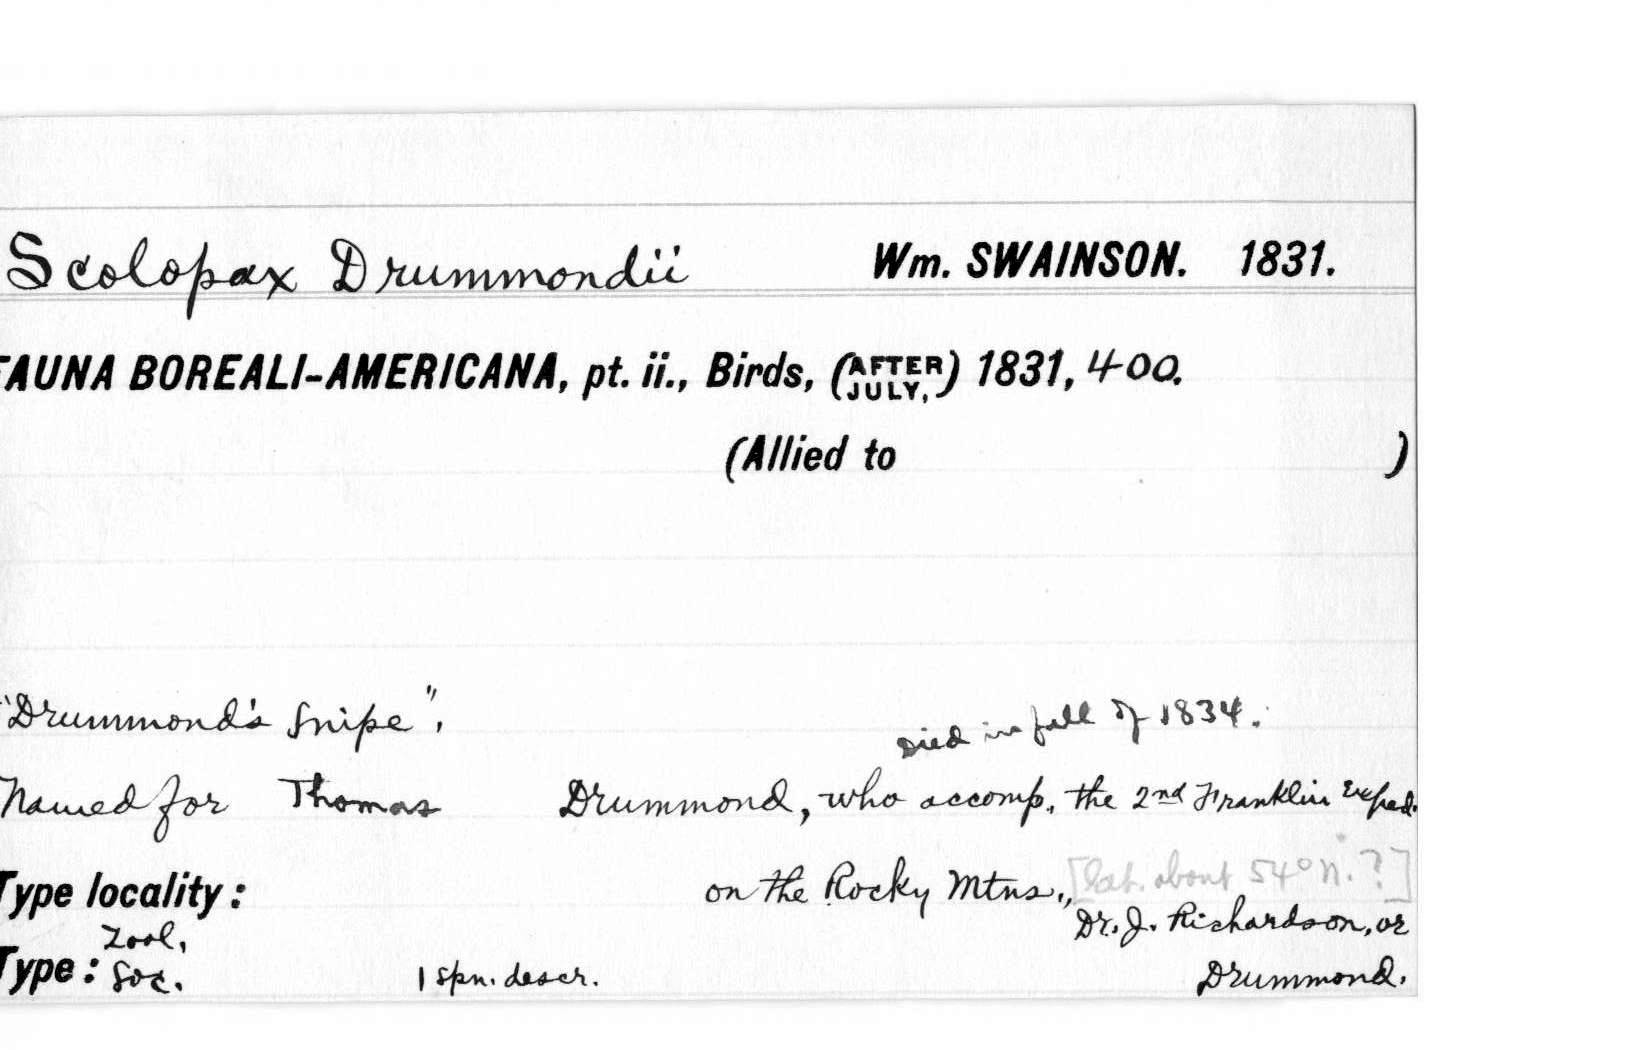 Scolopax Drummondii Wm. SWAINSON. 1831.
FAUNA BOREALI-AMERICANA, pt. ii., Birds, (AFTER JULY,) 1831, 400.
(Allied to )
"Drummond's Snipe".
died in fall of 1834.
Named for Thomas Drummond, who accomp. the 2nd Franklin Exped.
Type locality: on the Rocky Mtns., [Lat. about 54° N.?]
Dr. J. Richardson, or
Type: Zool. Soc. 1 spn. descr. Drummond.